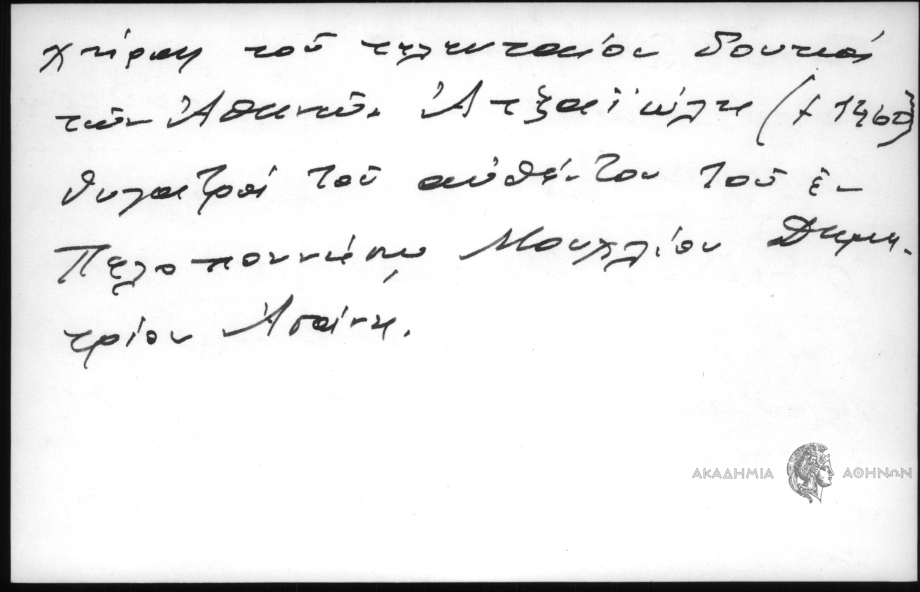 χήρας τοῦ τελευταίου δουκός
τῶν Ἀθηνῶν Ἀτζαϊώλη († 1460)
θυγατρός τοῦ αὐθέντου τοῦ ἐν
Πελοποννήσῳ Μουχλίου Δημη-
τρίου Ἀσάνη.
ΑΚΑΔΗΜΙΑ ΑΘΗΝΩΝ